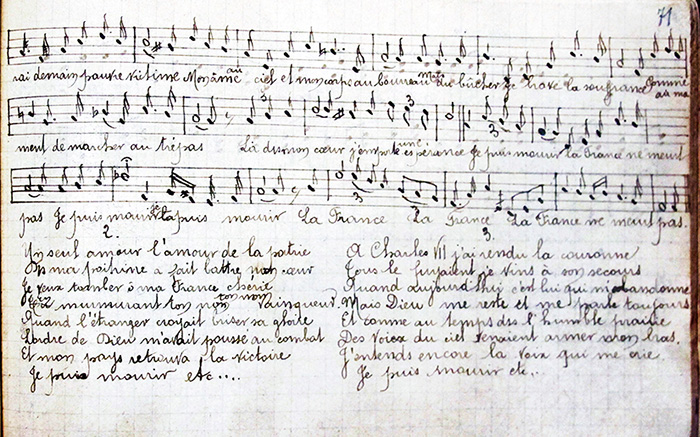 71
rai demain pauvre victime Mon âme au ciel et mon corps au bourreau Mais du bûcher je brave la souffrance Comme au mo
ment de marcher au trépas La dis mon cœur j'emporte une espérance Je puis mourir la France ne meurt
pas Je puis mourir puis mourir La France La France La France ne meurt pas.
2.
Un seul amour l'amour de la patrie
ma poitrine a fait battre mon cœur
Je veux tomber ô ma France chérie
murmurant ton nom ton nom vainqueur
Quand l'étranger croyait briser sa gloire
L'ordre de Dieu m'avait poussé au combat
Et mon pays retrouva la victoire
Je puis mourir etc....
3.
A Charles VII j'ai rendu la couronne
Tous le fuyaient je vins à son secours
Quand aujourd'hui c'est lui qui m'abandonne
Mais Dieu me reste et me parle toujours
Et comme au temps de l'humble prairie
Des Voiex du ciel venaient armer mon bras.
J'entends encore la voix qui me crie
Je puis mourir etc...